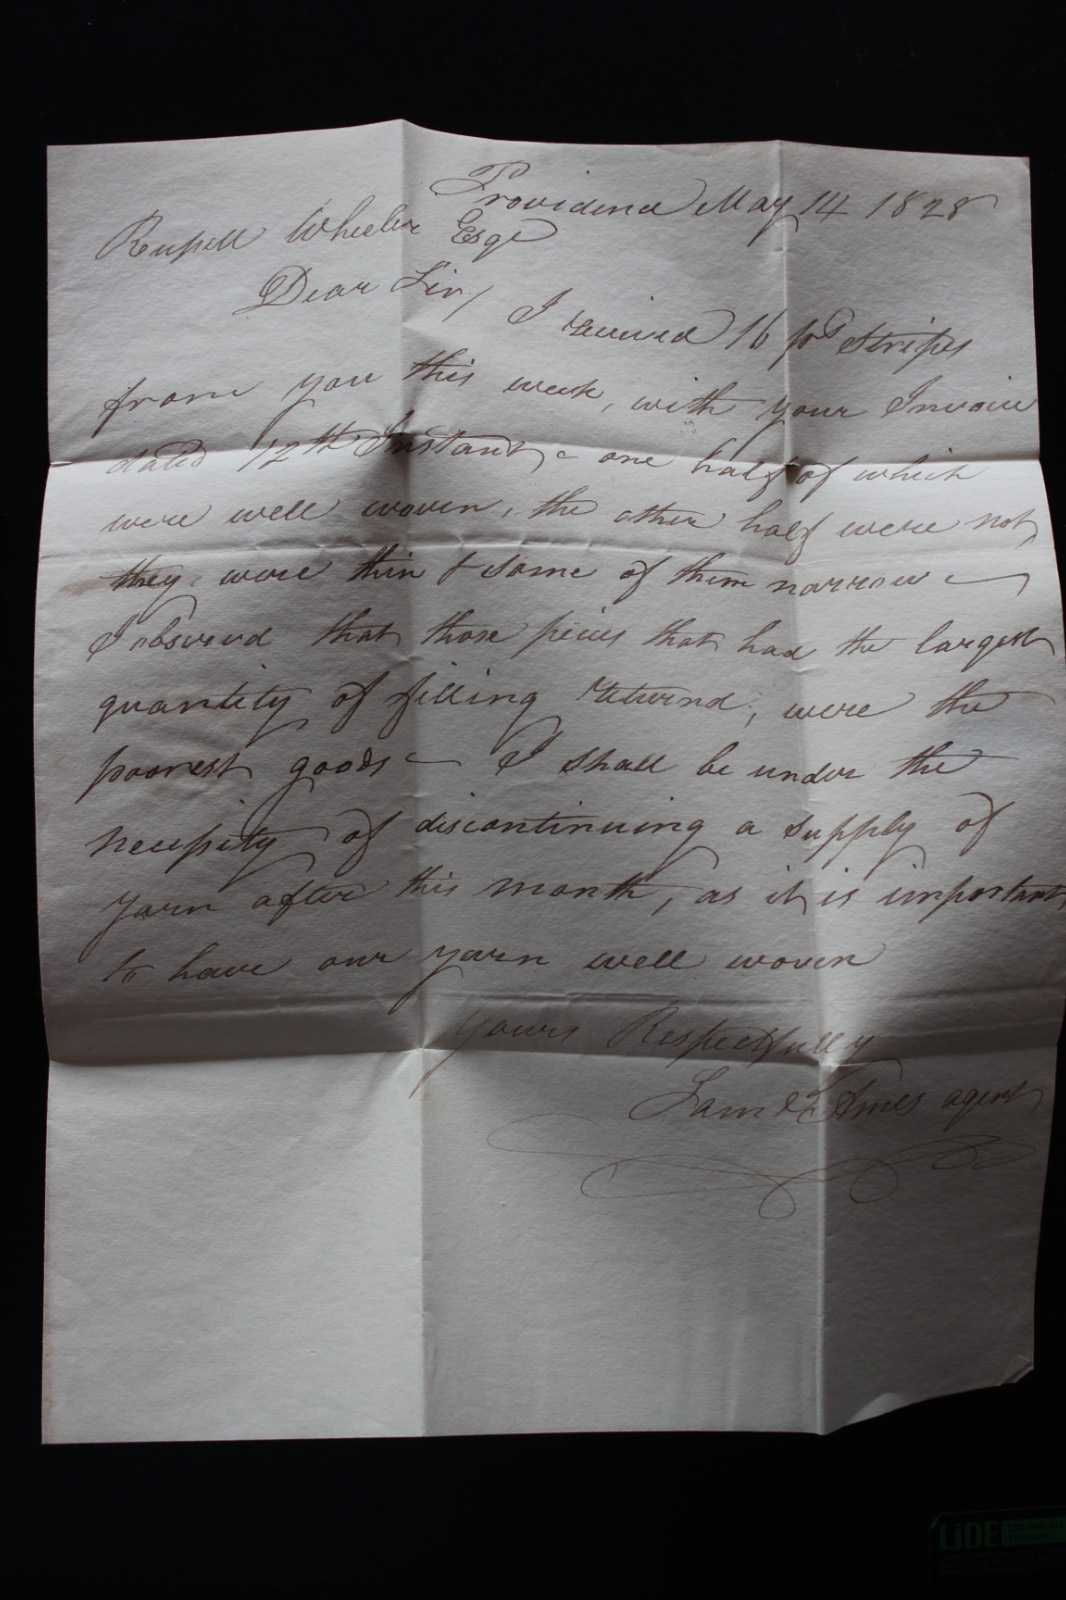 Providence May 14 1828
Russell Wheeler Esqr
Dear Sir / I received 16 ps Stripes
from you this week, with your Invoice
dated 12th Instant, one half of which
were well woven, the other half were not,
they were thin & some of them narrow —
I observed that those pieces that had the largest
quantity of filling returnd, were the
poorest goods — I shall be under the
necessity of discontinuing a supply of
yarn after this month, as it is important,
to have our yarn well woven
yours Respectfully
Saml Ames agent
LiDE